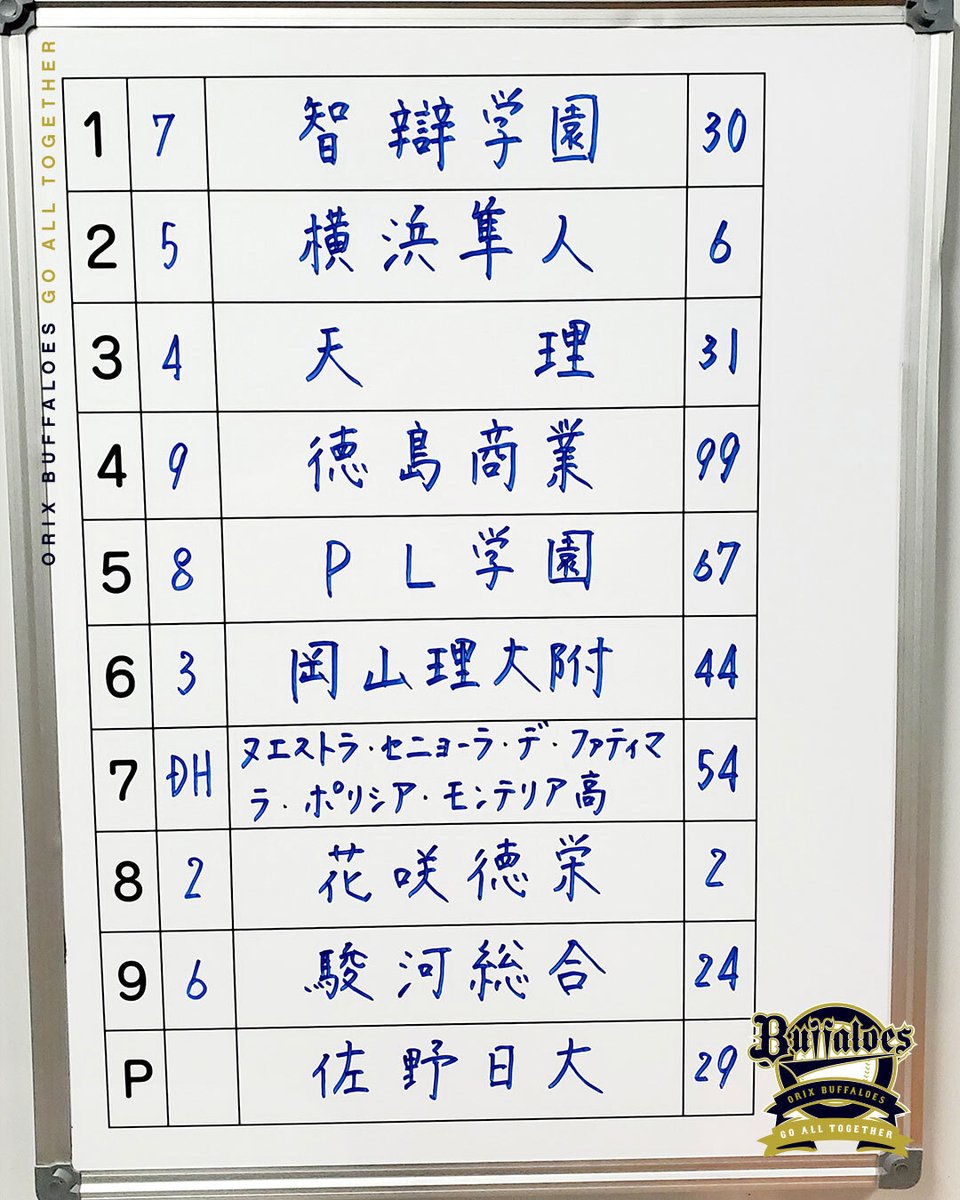 ORIX BUFFALOES GO ALL TOGETHER
1 7 智辯学園 30
2 5 横浜隼人 6
3 4 天理 31
4 9 徳島商業 99
5 8 PL学園 67
6 3 岡山理大附 44
7 DH ヌエストラ・セニョーラ・デ・ファティマ 54
ラ・ポリシア・モンテリア高
8 2 花咲徳栄 2
9 6 駿河総合 24
P 佐野日大 29
Buffaloes
ORIX BUFFALOES
GO ALL TOGETHER